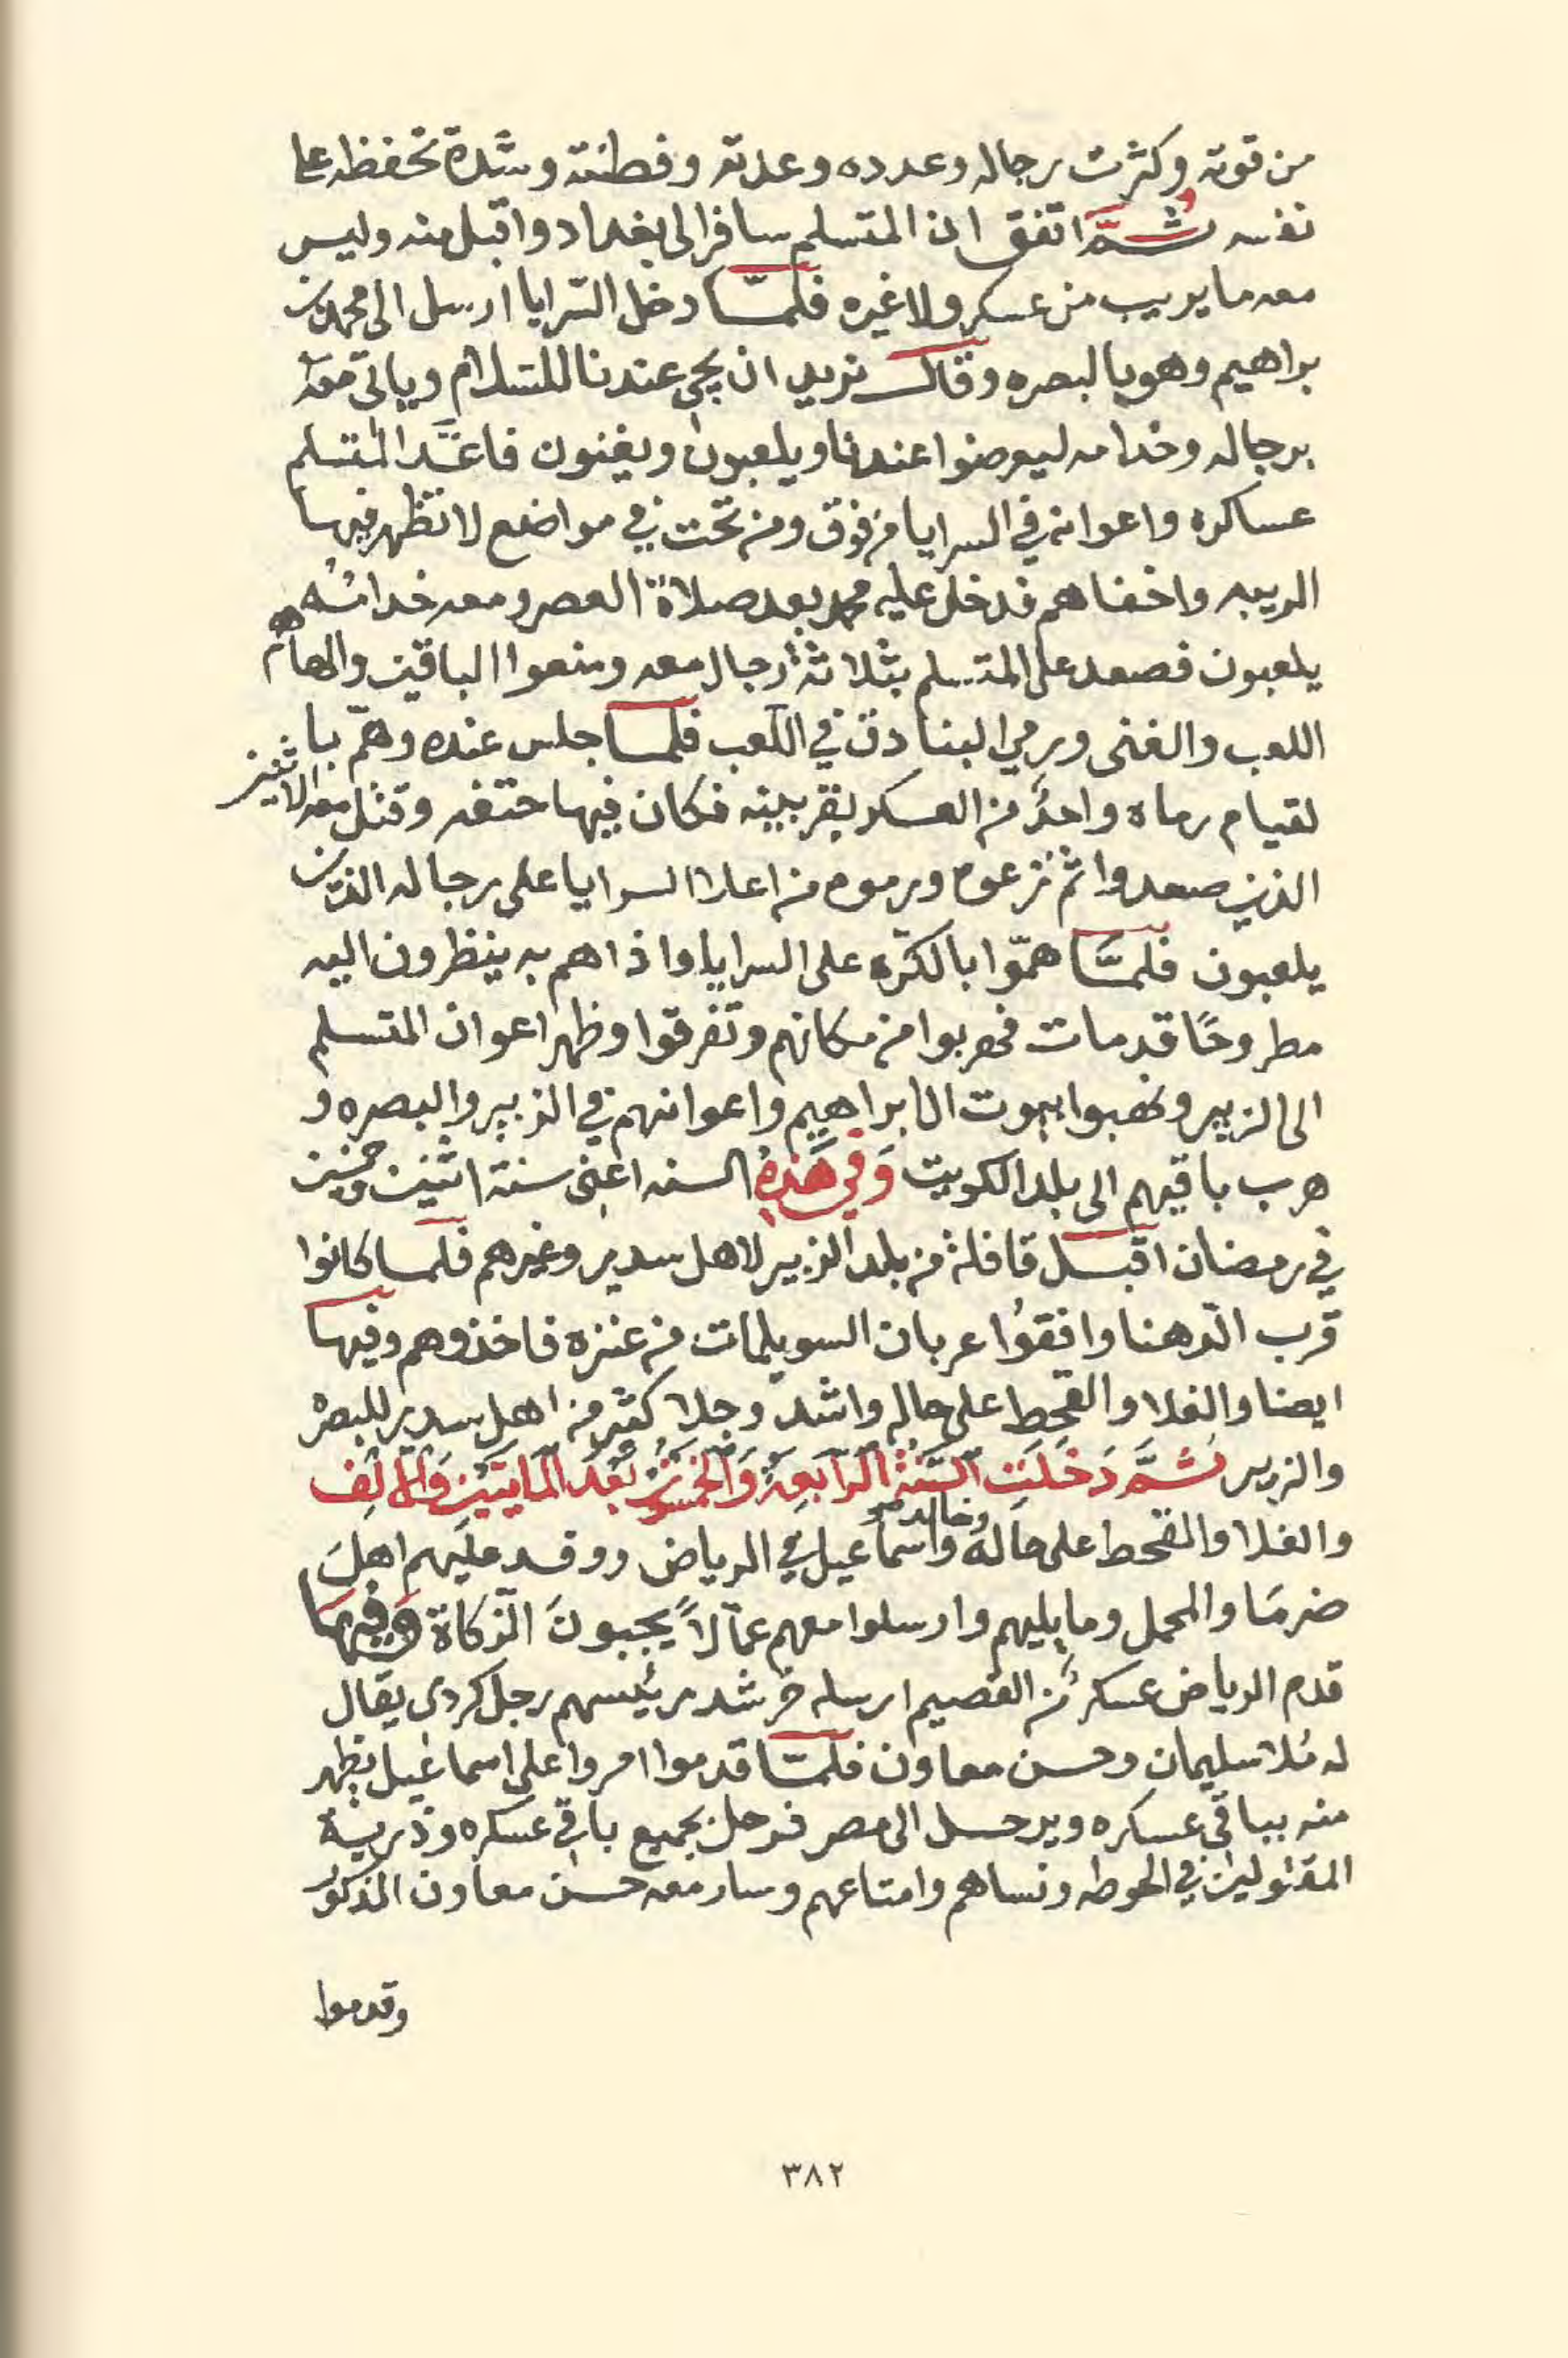 من قوته وكثرت رجاله وعدده وعدته وفطنته وشدة تحفظه على
نفسه ثُمَّ اتفق ان المتسلم سافر الى بغداد واقبل منه وليس
معه ما يريب من عسكر ولا غيره فلمَّا دخل السّرايا ارسل الى محمد بن
براهيم وهو بالبصره وقال نريد ان يجي عندنا للسّلام وياتي معَهُ
برجاله وخدامه ليعرضوا عندنا ويلعبون ويغنون فاعَدَّ المتسلم
عساكره واعوانه في السرايا من فوق ومن تحت في مواضع لا تظهر فيها
الريبه واخفاهم فدخل عليه محمد بعد صلاة العصر ومعه خدامُه
يلعبون فصعد على المتسلم بثلاثة رجال معه ومنعوا الباقين والهاهم
اللعب والغنى ورمي البنادق في اللّعب فلمَّا جلس عنده وهمّ با
لقيام رماه واحدٌ من العسكر بقربينه فكان فيها حتفه وقتل معه الاثنين
الذين صعدوا ثم نزعوه ورموه من اعلا السرايا على رجاله الذين
يلعبون فلمَّا همّوا بالكرّه على السرايا واذا هم به ينظرون اليه
مطروحًا قد مات فهربوا من مكانهم وتفرقوا وظهر اعوان المتسلم
الى الزبير ونهبوا بيوت ال ابراهيم واعوانهم في الزبير والبصره و
هرب باقيهم الى بلد الكويت وَفي هَذِهِ السنه اعني سنة اثنين وخمسين
في رمضان اقبل قافلة من بلد الزبير لاهل سدير وغيرهم فلما كانوا
قرب الدّهنا وافقوُا عربان السويلمات من عنزه فاخذوهم وفيها
ايضا والغلا والقحط على حاله واشد وجلا كثير من اهل سدير للبصره
والزبير ثُمَّ دَخَلَتِ السَّنَةُ الرّابعَةُ وَالخمسون بَعْدَ المايَتَيْنِ وَالاَلِف
والغلا والقحط على حَاله وخالد واسماعيل في الرياض ووفد عليهم اهلَ
ضرمَا والمحمل وما يليهم وارسلوا معهم عمّالاً يجبونَ الزّكاة وَفيْهَا
قدم الرياض عسكر من القصيم ارسله خرشد رئيسهم رجل كردي يقال
له مُلا سليمان وحسن معاون فلمّا قدموا امروا على اسماعيل يظهر
منه بباقي عسكره ويرحل الى مصر فرحل بجميع باقي عسكره وذرية
المقتولين في الحوطه ونساهم وامتاعهم وسار معه حسن معاون المذكور
وقدموا
٣٨٢